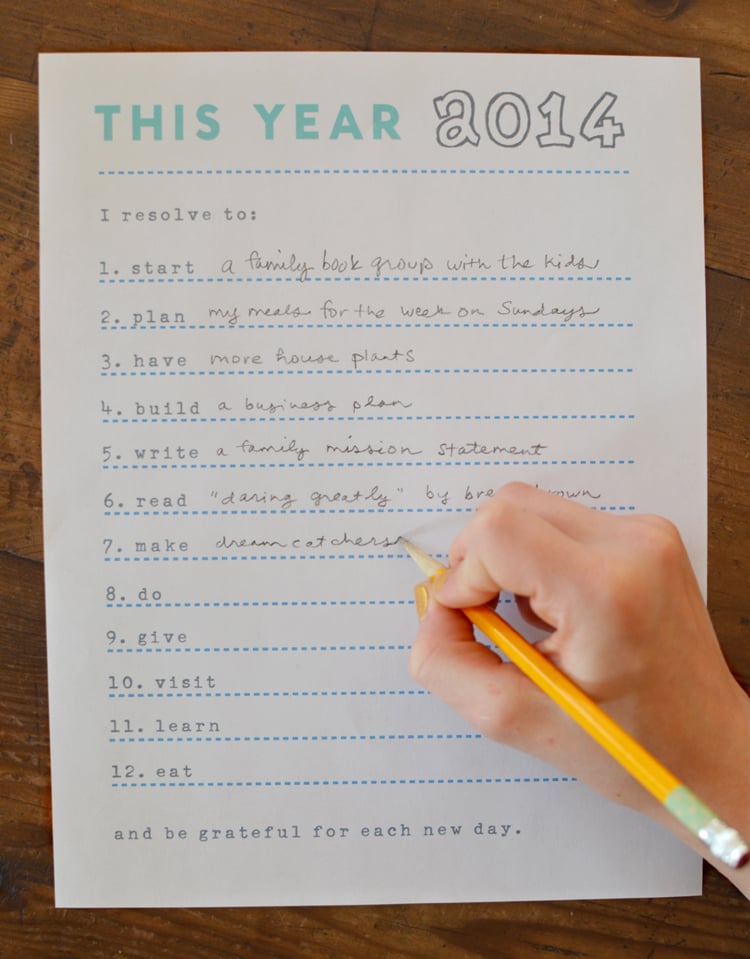 THIS YEAR 2014
I resolve to:
1. start a family book group with the kids
2. plan my meals for the week on Sundays
3. have more house plants
4. build a business plan
5. write a family mission statement
6. read "daring greatly" by
7. make dreamcatchers
8. do
9. give
10. visit
11. learn
12. eat
and be grateful for each new day.